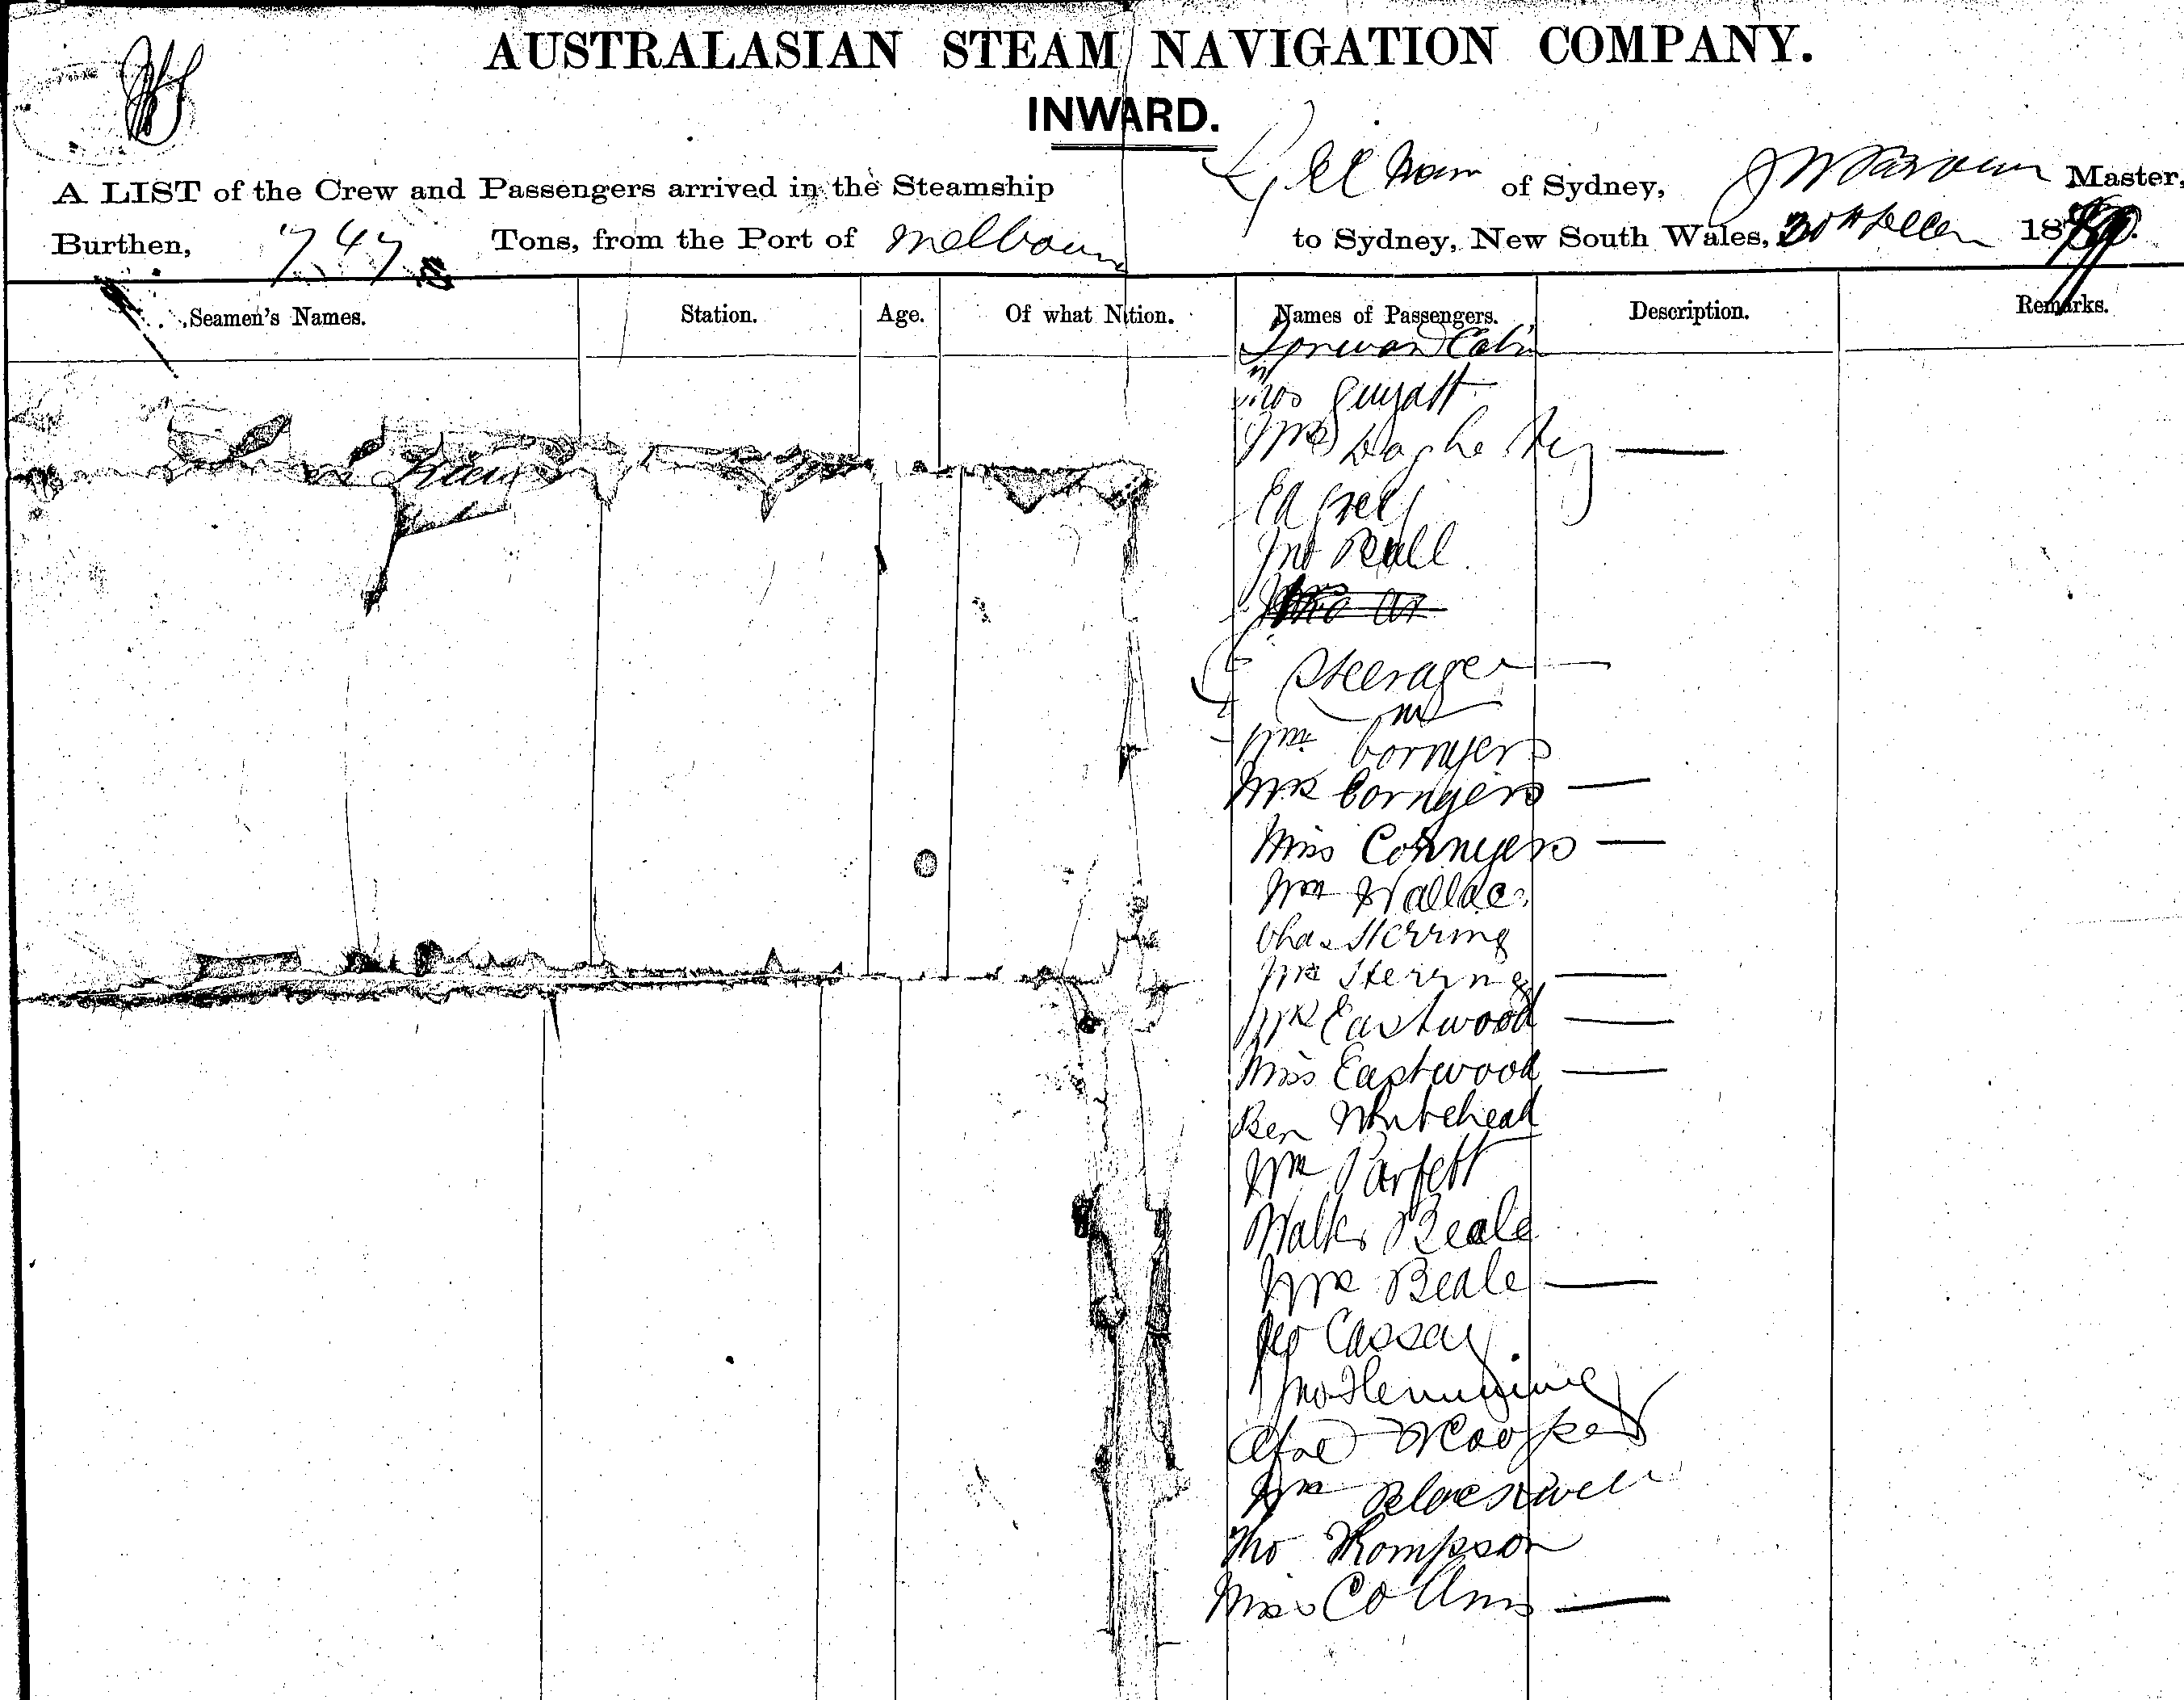 AUSTRALASIAN STEAM NAVIGATION COMPANY.
INWARD.
A LIST of the Crew and Passengers arrived in the Steamship of Sydney, Master,
Burthen, 747 Tons, from the Port of Melbourn to Sydney, New South Wales, 30th 18
Seamen's Names. Station. Age. Of what Nation. Names of Passengers. Description. Remarks.
Forward Cabin
Guyatt
Mrs Dogherty —
Ed Grey
Jno Bull
Steerage
Wm Cornyers
Mrs Cornyers —
Miss Connyers —
Wm Wallace
Chas Herring
Mrs Herring —
Mrs Eastwood —
Miss Eastwood —
Ben Whitehead
Wm Parfett
Walter Beale
Mrs Beale —
Geo Cassay
Jno Flemming
Alfred Cooper
Wm Blackwell
Tho Thompson
Miss Collins —